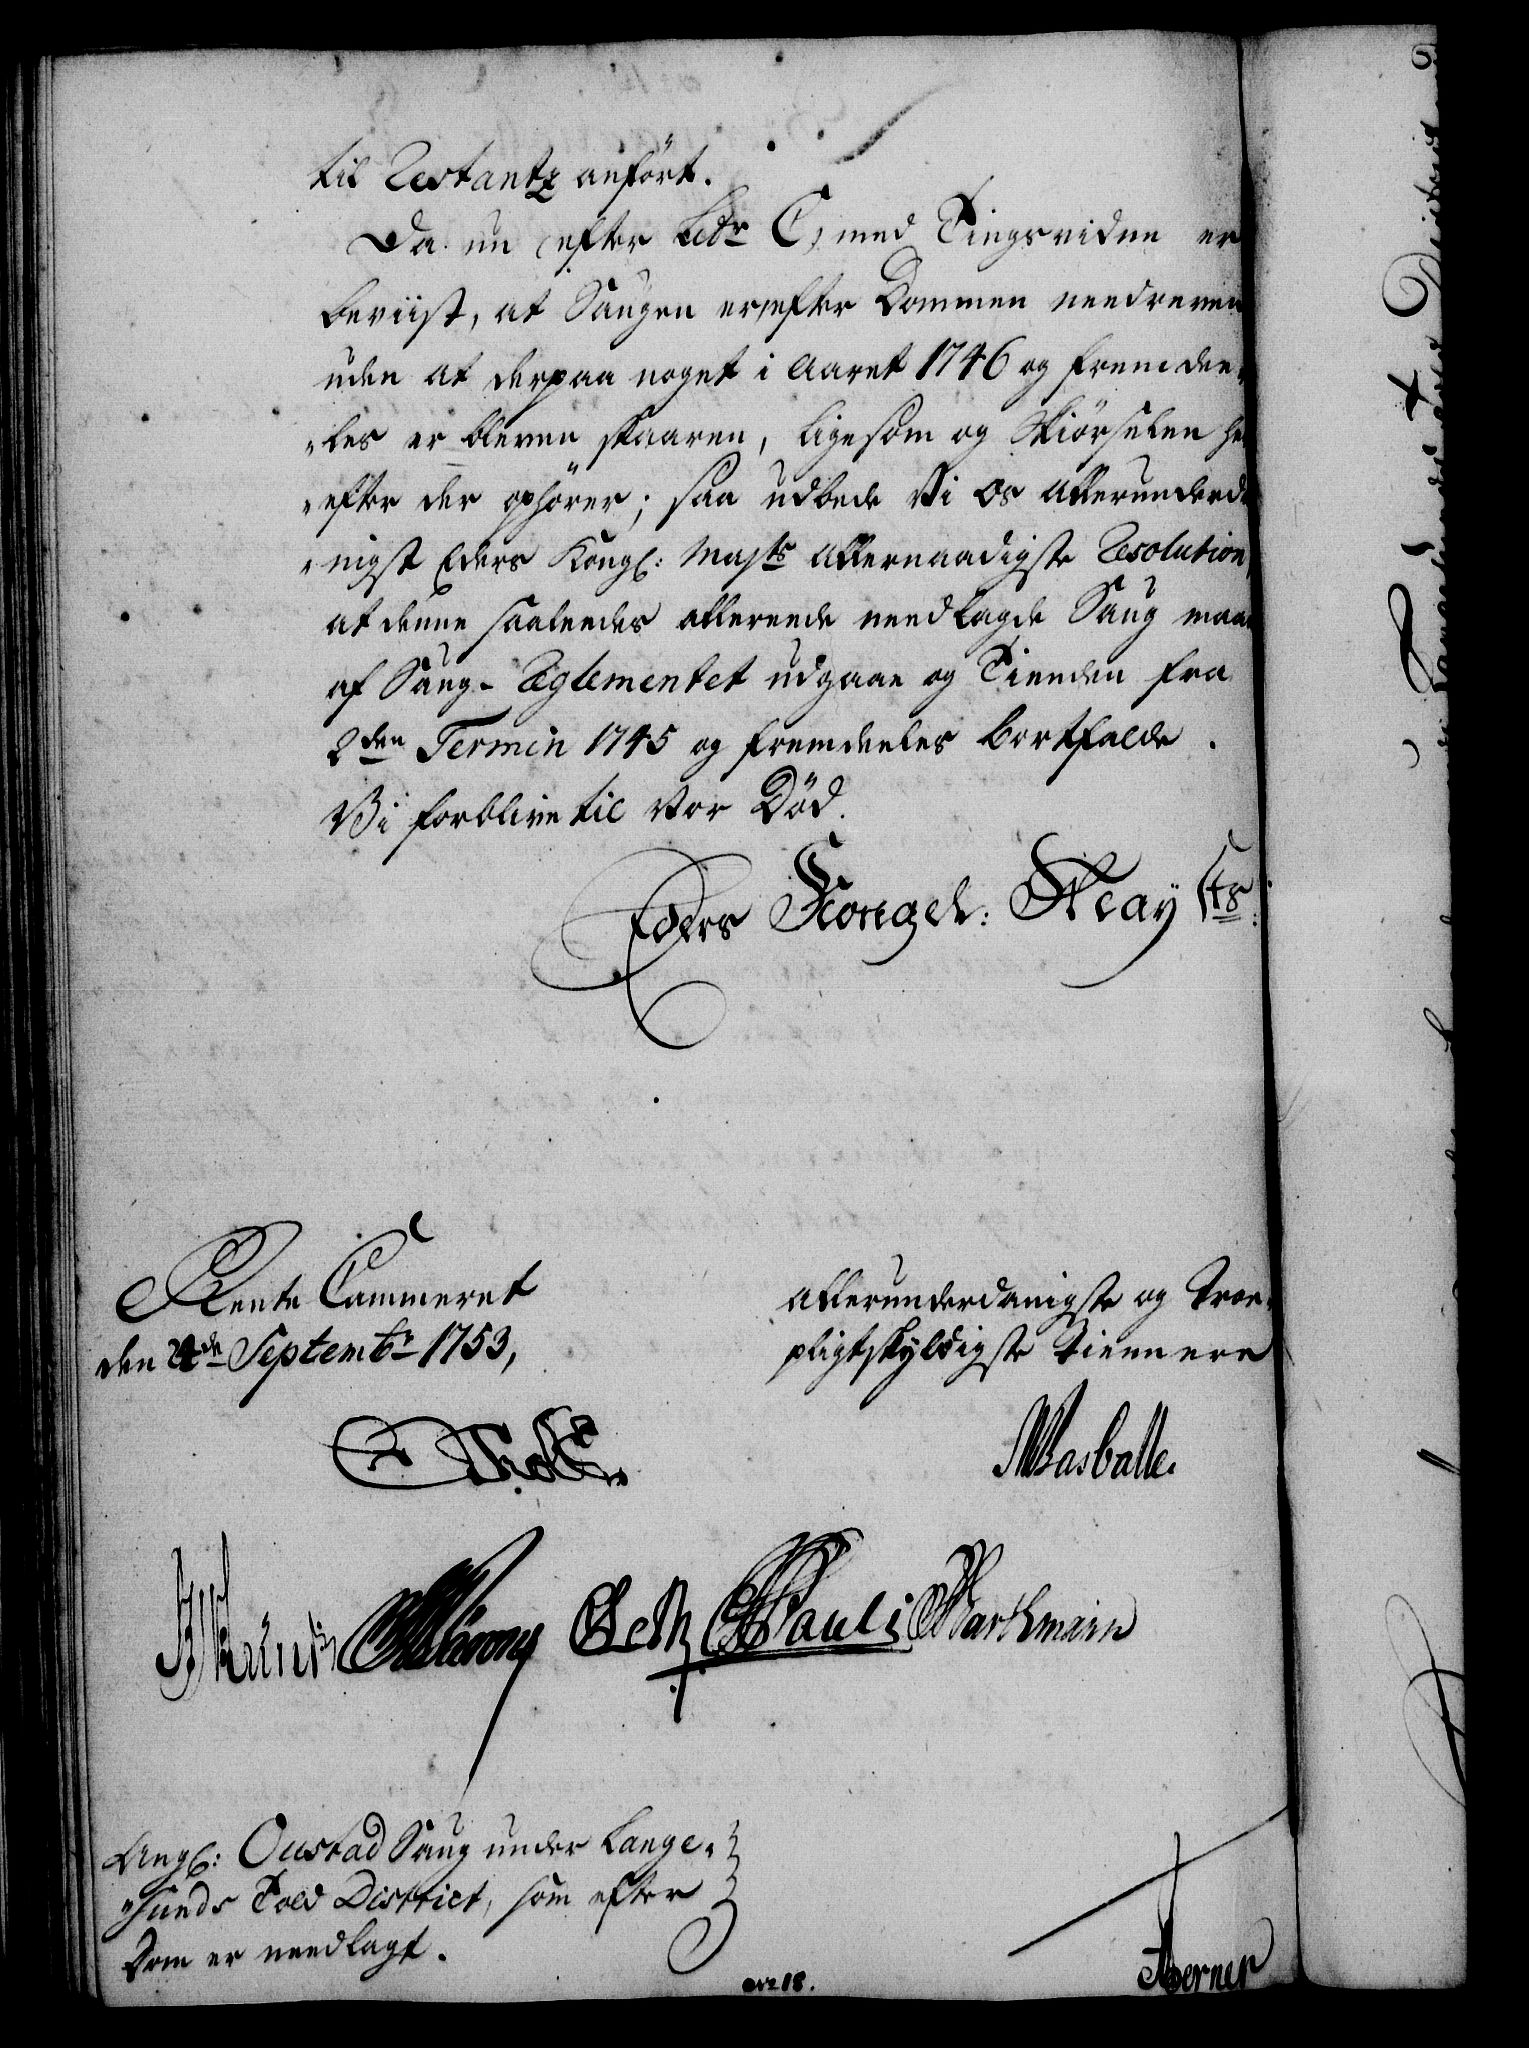 til Restantz anført.
Da nu (efter Lidr C) med Tingsvidne er
beviist, at Saugen er, efter Dommen needreven
uden at derpaa noget i Aaret 1746 og fremdee„
„les er bleven skaaren, ligesom og Kiørselen her
„efter der ophører; saa udbede Vi os allerunderda
„nigst Eders Kongl: Maj.ts allernaadigste Resolution,
at denne saaleedes allereede needlagde Saug maae
af Saug-Reglementet udgaae og Tienden fra
2den Termin 1745 og fremdeeles bortfalde.
Vi forblive til vor Død.
Eders Kongel: May.sts:
Rente Cammeret
den 4de Septembr 1753,
allerunderdanigste og Troe„
pligtskyldigste Tiennere
Wasballe.
Pauli Barthmain
Angl: Oustad Saug under Lange„
„sunds Told District, som efter
Dom er needlagt.
Berner
No 18.